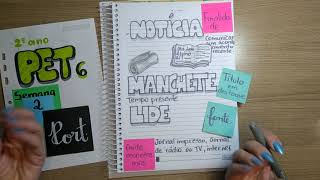 2º ano
PET 6
Semana
2
Port
NOTÍCIA
Finalidade
Comunicar
recente
MANCHETE
Título
em
destaque
Tempo presente
LIDE
fonte
Jornal impresso, Jornal
de rádio ou TV, internet